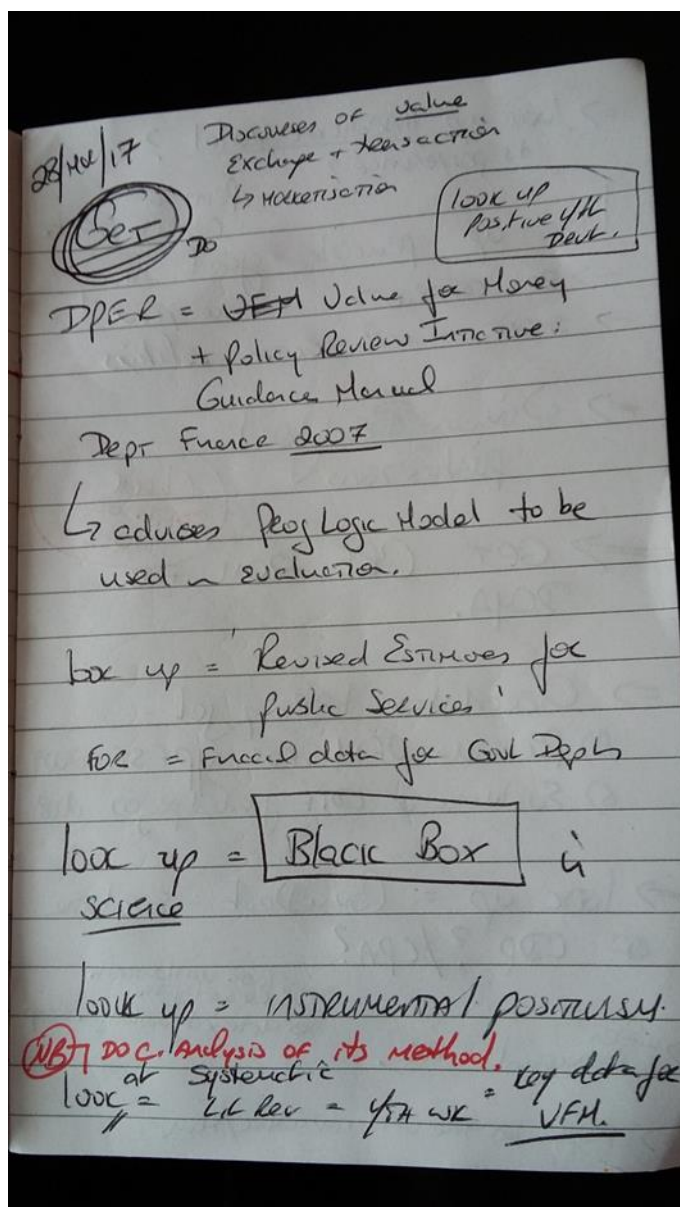 28/Mar/17
Discourses of value
Exchange + transaction
↳ Marketisation
Get
DO
look up
positive yth
Devt.
DPER = VFM Value for Money
+ Policy Review Initiative:
Guidance Manual
Dept Finance 2007
↳ advises Prog Logic Model to be
used in evaluation.
look up = 'Revised Estimates for
Public Services'
FOR = Financial data for Govt Depts
look up = Black Box in
science
look up = INSTRUMENTAL POSITIVISM.
NB → DOC. Analysis of its method.
look at = Systematic
Lit Rev = Yth wk = key data for
VFM.